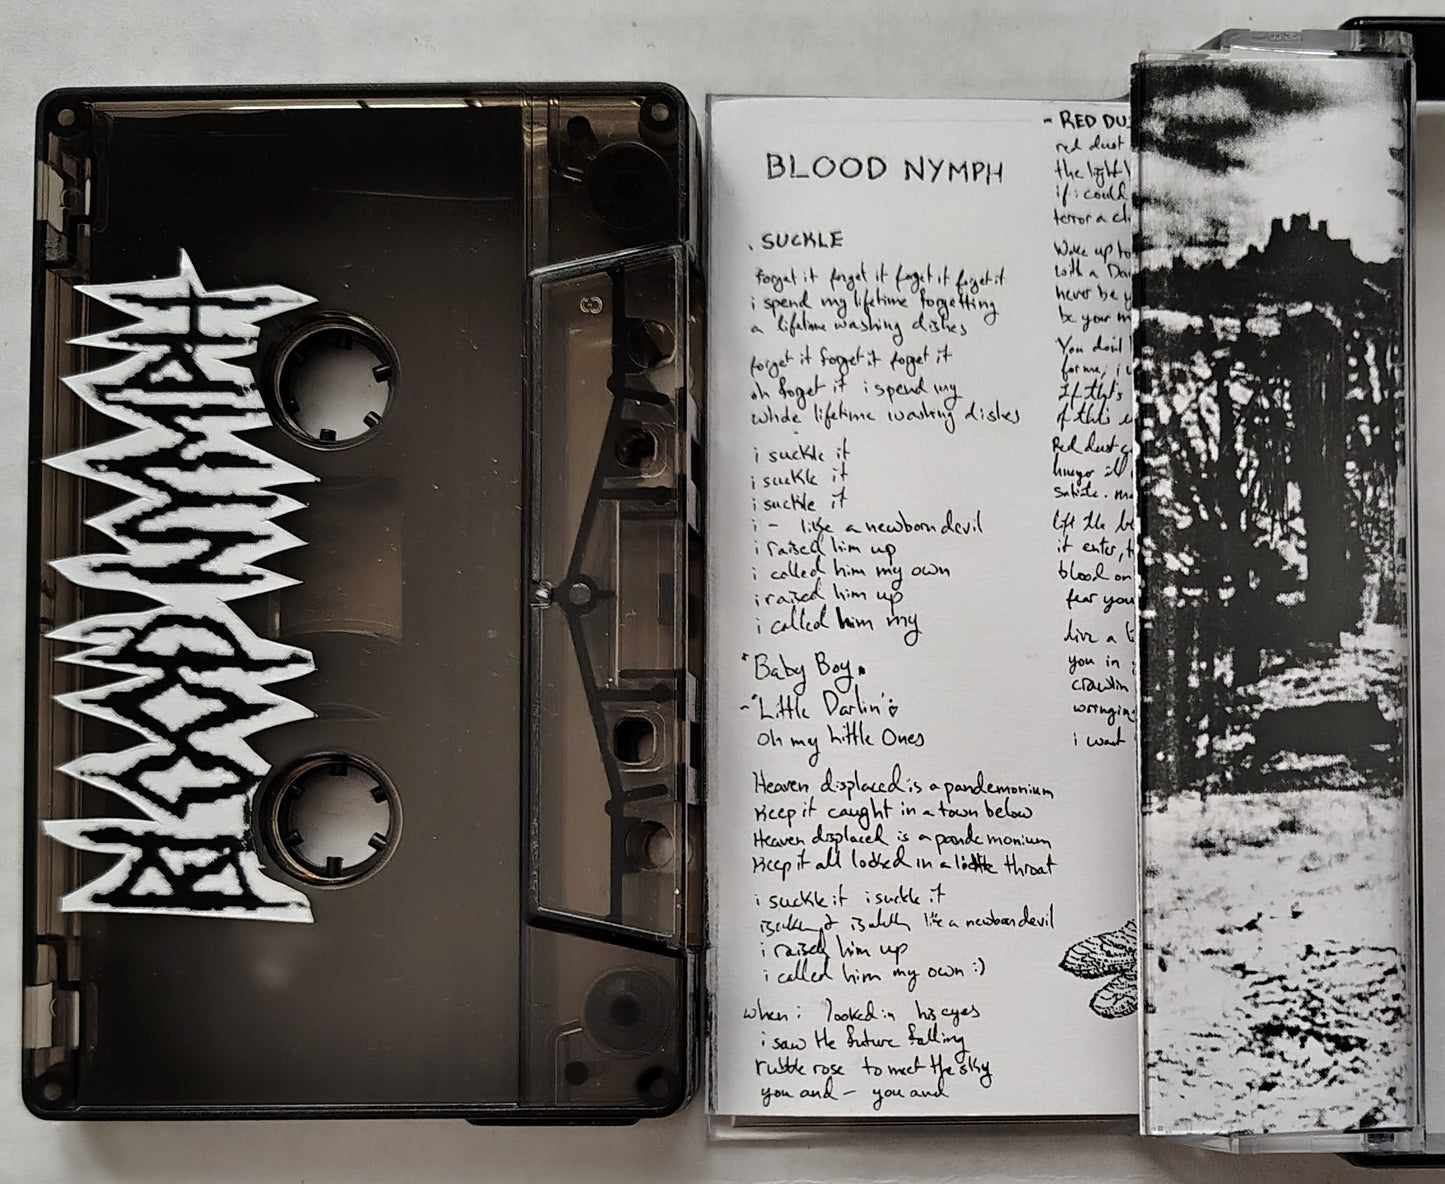 BLOOD NYMPH
8
BLOOD NYMPH
. SUCKLE
forget it forget it forget it forget it
i spend my lifetime forgetting
a lifetime washing dishes
forget it forget it forget it
oh forget it i spend my
whole lifetime washing dishes
i suckle it
i suckle it
i suckle it
i - like a newborn devil
i raised him up
i called him my own
i raised him up
i called him my
"Baby Boy.
-"Little Darlin'
oh my Little Ones
Heaven displaced is a pandemonium
Keep it caught in a town below
Heaven displaced is a pandemonium
Keep it all locked in a little throat
i suckle it i suckle it
like a newborn devil
i raised him up
i called him my own :)
when i looked in his eyes
i saw the future falling
rubble rose to meet the sky
you and - you and
- RED DU
red dust
the light
if i could
terror a
Wake up to
with a
never be y
be your m
You don't
for me, i
If that's
if this
Red dust
hunger
Satiate. m
lift the
it enter,
blood on
fear you
live a
you in
crawlin
wringing
i want